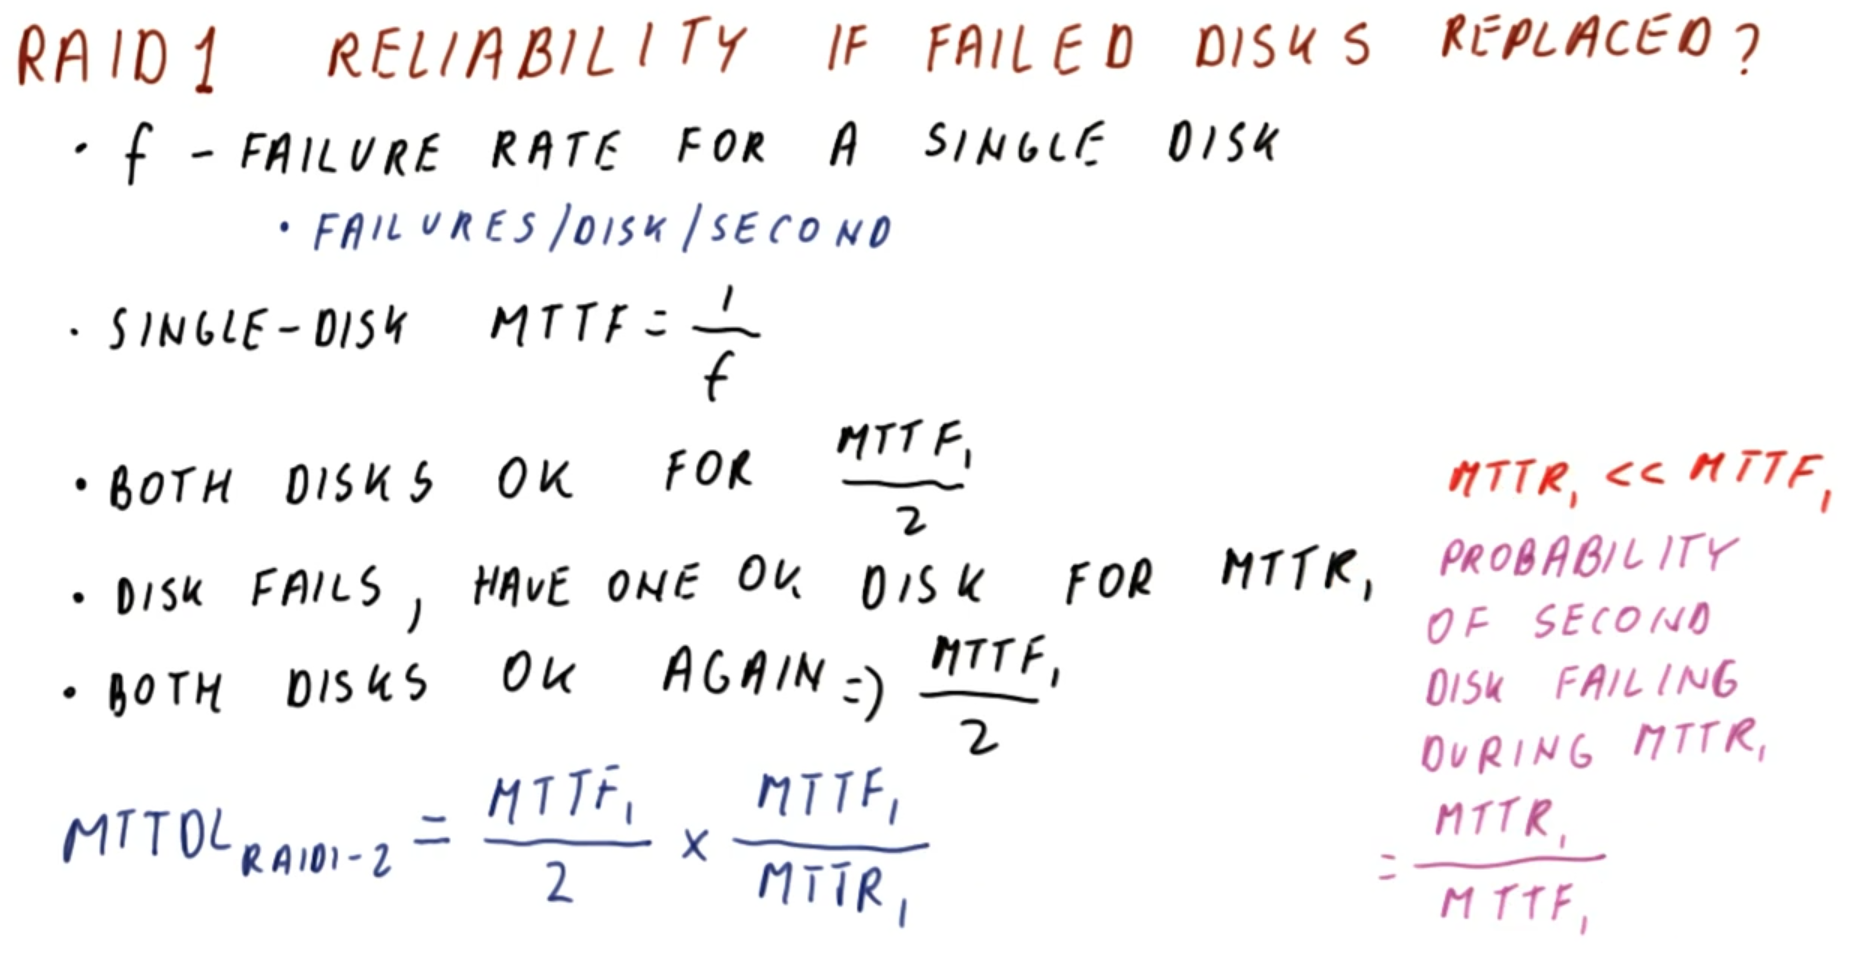 RAID1 RELIABILITY IF FAILED DISKS REPLACED?
· f - FAILURE RATE FOR A SINGLE DISK
· FAILURES/DISK/SECOND
· SINGLE-DISK MTTF = 1/f
· BOTH DISKS OK FOR MTTF₁/2
· DISK FAILS, HAVE ONE OK DISK FOR MTTR₁
· BOTH DISKS OK AGAIN => MTTF₁/2
MTTDL RAID1-2 = MTTF₁/2 × MTTF₁/MTTR₁
MTTR₁ << MTTF₁
PROBABILITY
OF SECOND
DISK FAILING
DURING MTTR₁
= MTTR₁/MTTF₁